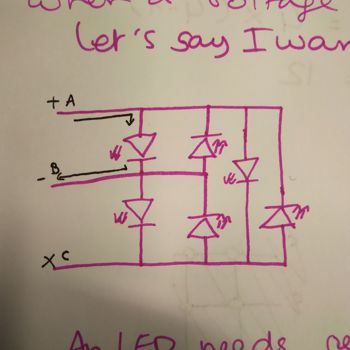 when a voltage
Let's say I wan
+ A
- B
x C
An LED needs